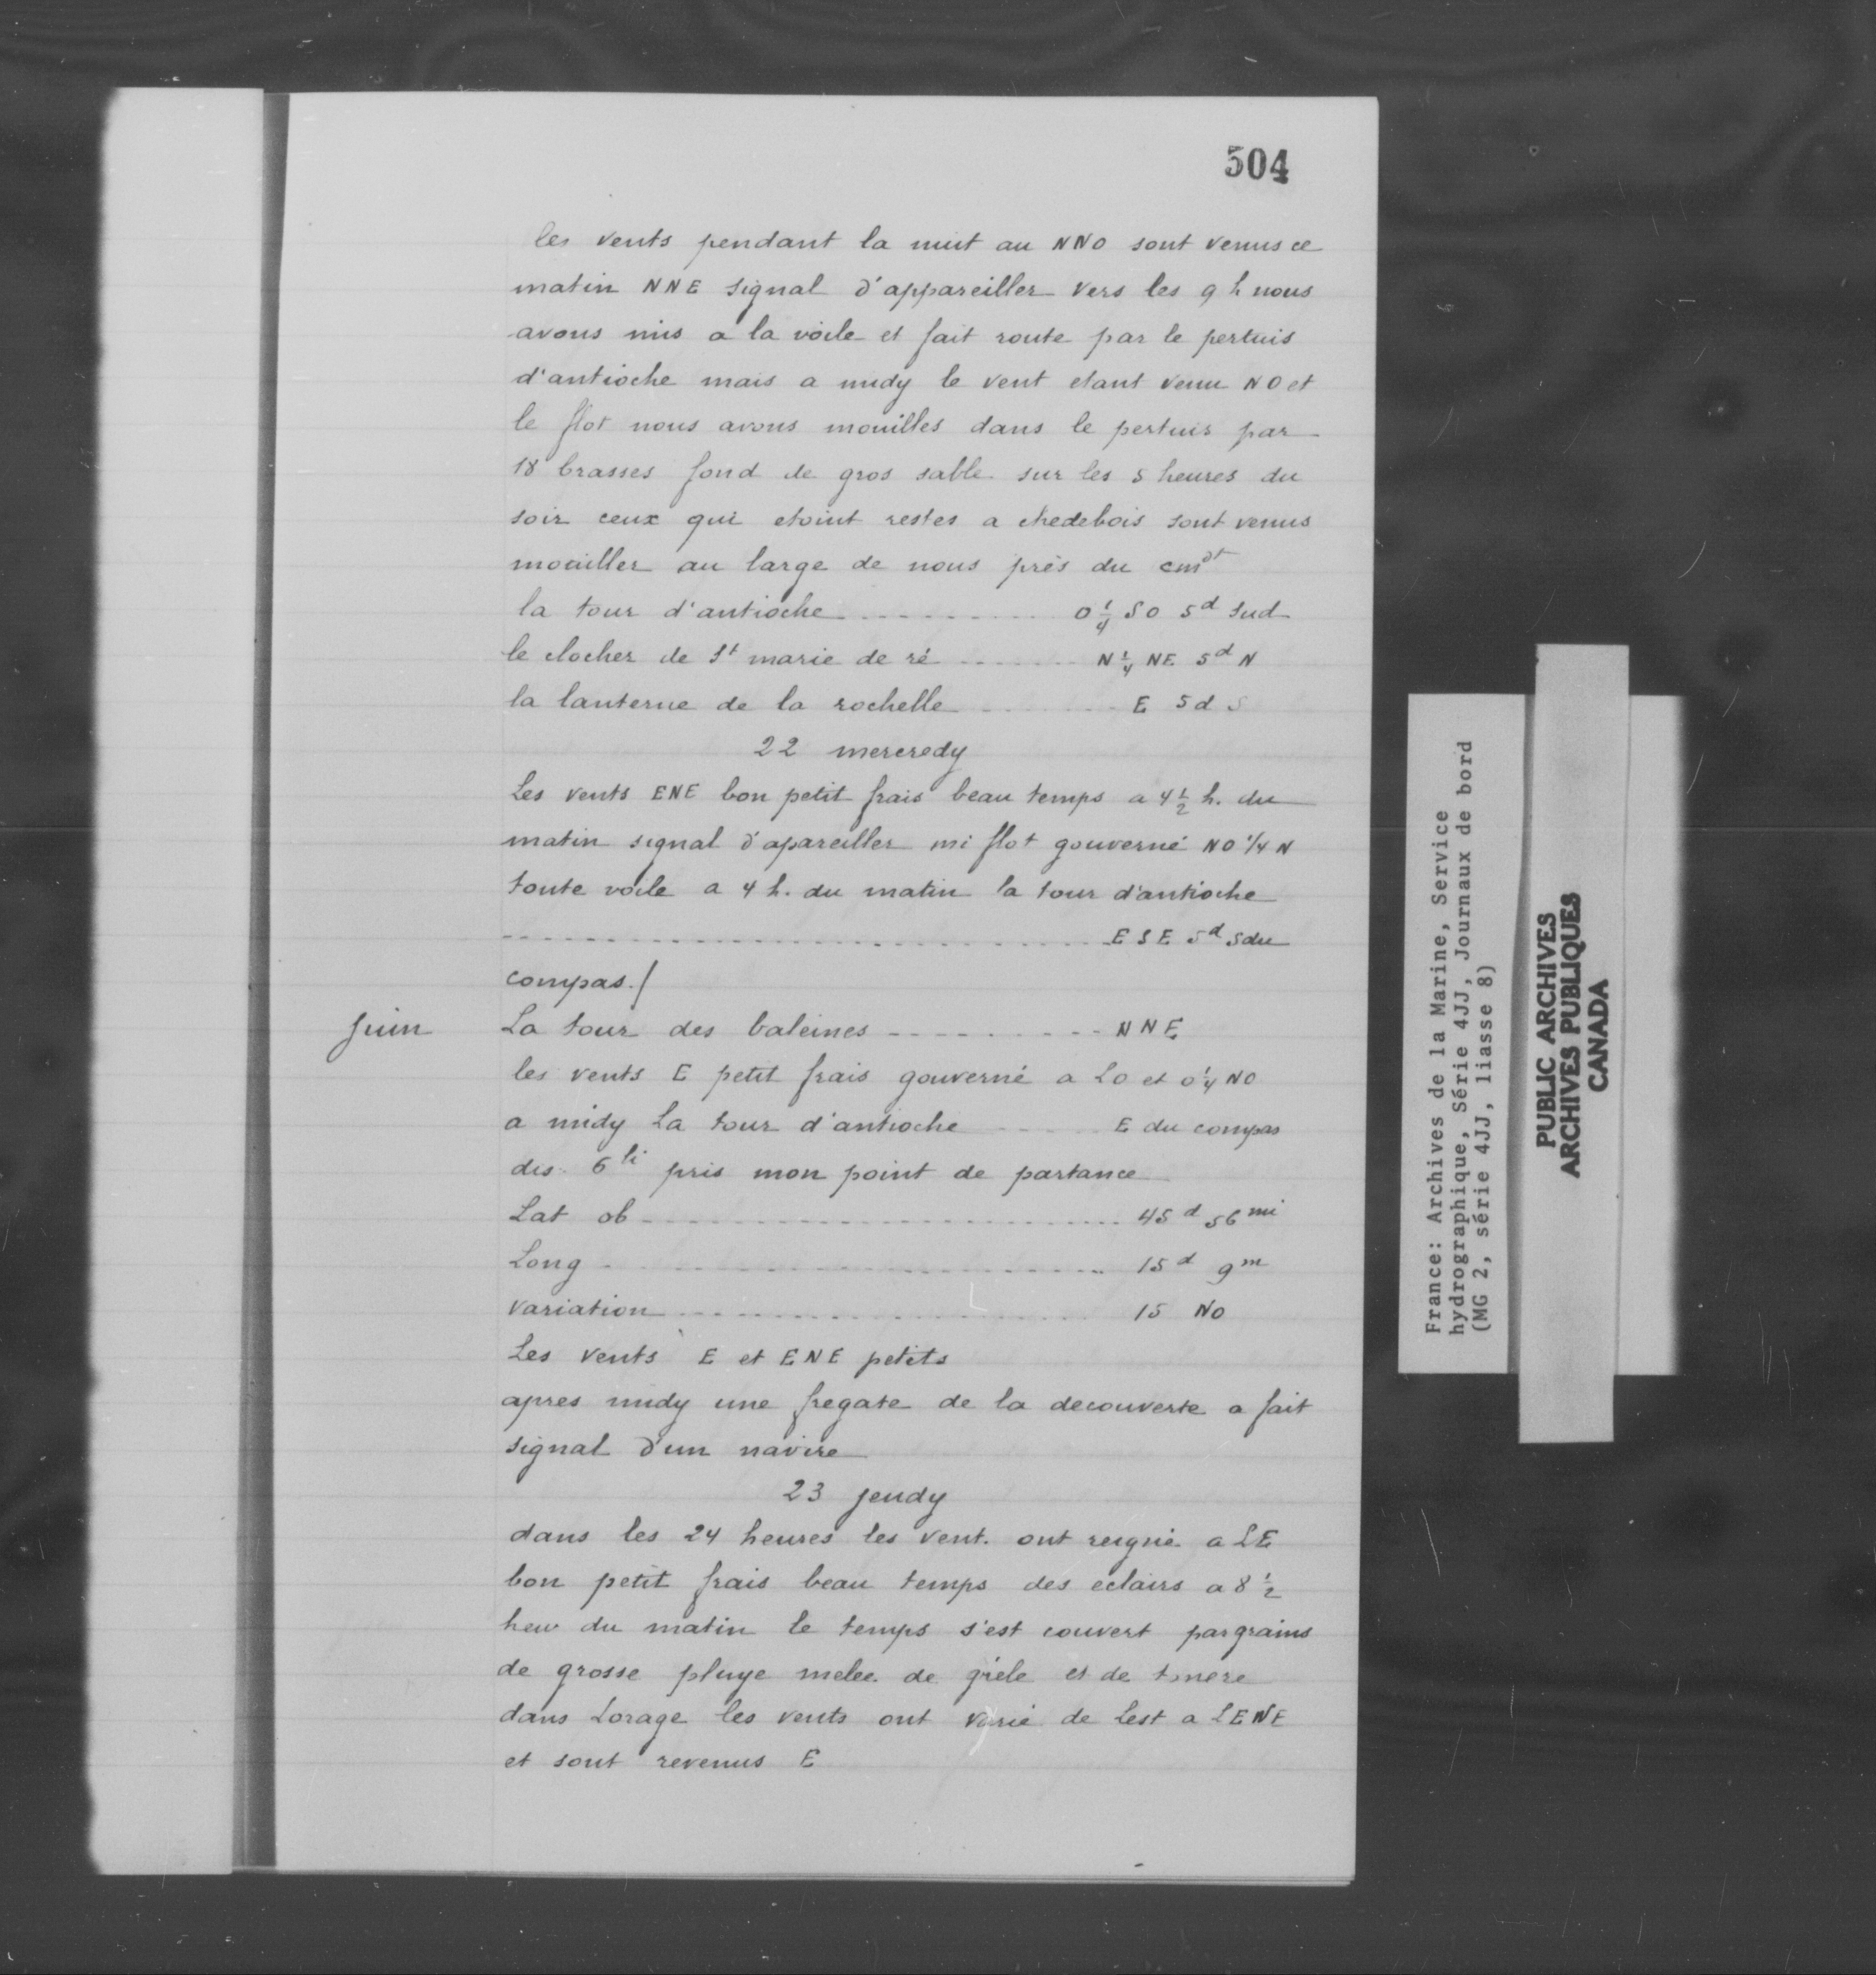 504
les vents pendant la nuit au NNO sont venus ce
matin NNE signal d'appareiller vers les 9 h nous
avons mis a la voile et fait route par le pertuis
d'antioche mais a midy le vent etant venu NO et
le flot nous avons mouilles dans le pertuis par
18 brasses fond de gros sable sur les 5 heures du
soir ceux qui etoint restes a chedebois sont venus
mouiller au large de nous près du cmdt
la tour d'antioche ............ O 1/4 SO 5d Sud
le clocher de St marie de ré ....... N 1/4 NE 5d N
la lanterne de la rochelle ........ E 5d S
22 mercredy
Les vents ENE bon petit frais beau temps a 4 1/2 h. du
matin signal d'apareiller mi flot gouverné NO 1/4 N
toute voile a 4 h. du matin la tour d'antioche
............................ ESE 5d S du
compas./
Juin
La tour des baleines .......... NNE
les vents E petit frais gouverné a LO et O 1/4 NO
a midy La tour d'antioche ...... E du compas
dis 6 li pris mon point de partance
Lat ob ........................ 45d 56mi
Long ........................ 15d 9m
variation .................... 15 NO
Les vents E et ENE petits
apres midy une fregate de la decouverte a fait
signal d'un navire
23 jeudy
dans les 24 heures les vent. ont reigné a LE
bon petit frais beau temps des eclairs a 8 1/2
heu du matin le temps s'est couvert par grains
de grosse pluye melee de grele et de tonere
dans Lorage les vents ont varié de Lest a LENE
et sont revenus E
France: Archives de la Marine, Service
hydrographique, Série 4JJ, Journaux de bord
(MG 2, série 4JJ, liasse 8)
PUBLIC ARCHIVES
ARCHIVES PUBLIQUES
CANADA